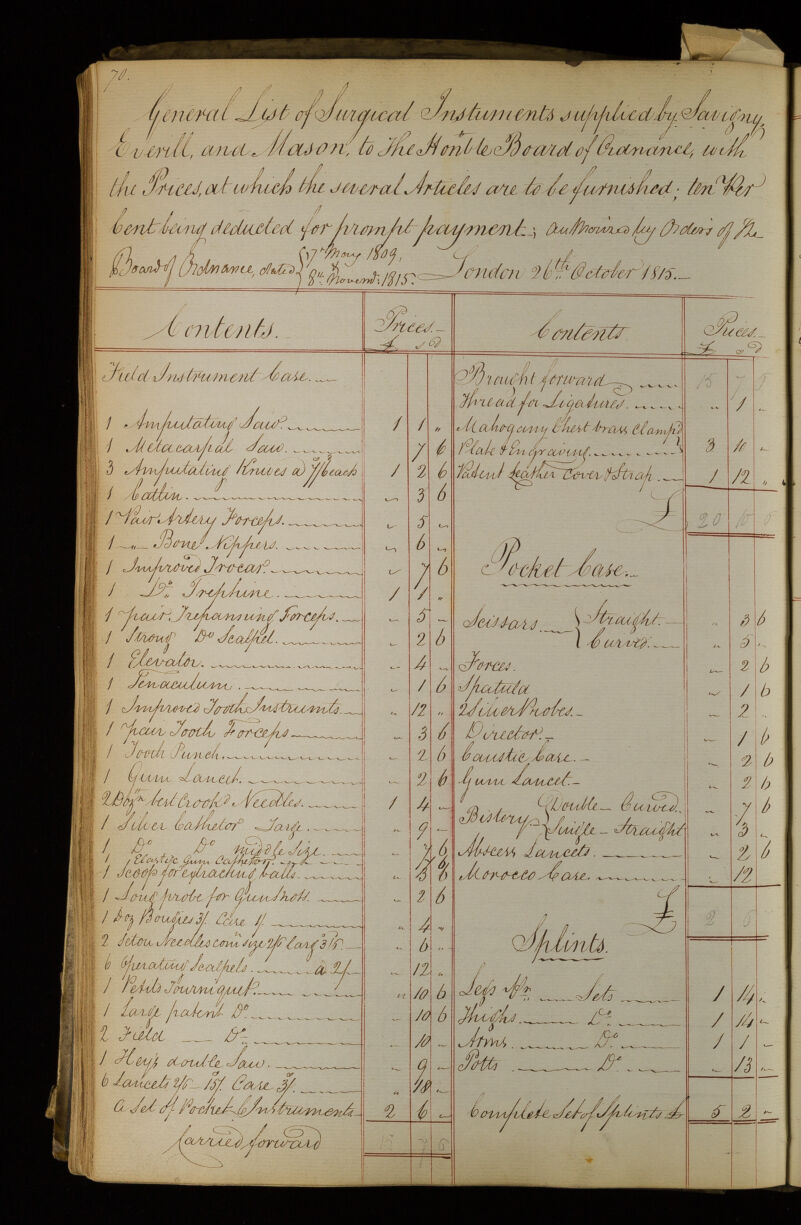 70.
General List of Surgical Instruments supplied by Savigny,
Everill, and Mason, to The Honble Board of Ordnance, with
the Prices, at which the several Articles are to be furnished; ten Per
Cent being deducted for prompt payment; authorized by Orders of The
Board of Ordnance, dated 7th May 1809, & 8th Novemr: 1815. London 26th October 1815.
Contents. Prices. £ s d
Field Instrument Case.
1 Amputating Saw 1 1 "
1 Metacarpal Saw 7 6
3 Amputating Knives a) 7/6 each 1 2 6
1 Cattin 3 6
1 Pair Artery Forceps 5 "
1 " Bone Nippers 6 "
1 Improved Trocar 7 6
1 Do. Trephine 1 1 "
1 pair Trepanning Forceps 5 "
1 Strong Do Scalpel 2 6
1 Elevator 4 "
1 Tenaculum 1 6
1 Improved Tooth Instrumts 12 "
1 pair Tooth Forceps 3 6
1 Tooth Punch 2 6
1 Gum Lancet 2 6
2 Dozn best Crookd Needles 1 4 "
1 Silver Cathetor Large 9 "
1 Do Do Middle Size 7 6
1 Elastic Gum Cathetor
1 Scoop for extracting balls 3 6
1 Long probe for Gunshots 2 6
1 Doz Bougies 3/. Case 1/ 4 "
2 Seton Needles com size 2/6 Large 3/6 6 "
6 Operating Scalpels a 2/- 12 "
1 Petits Tourniquet 10 6
1 Large patent Do 10 6
2 Field Do 10 "
1 Hey's double Saw 9 "
6 Lancets 2/6 - 15/. Case 3/. 18 "
a Set of Pocket Instruments 2 6 "
Carried forward 15 7 6
Contents Prices £ s d
Brought forward 15 7 6
Thread for Ligatures 1 "
Mahogany Chest brass Clamp'd
Plate & Engraving 3 10 "
Patent Leather Cover & Strap 1 12 "
£ 20 10 6
Pocket Case.
Scissars Straight 3 6
Curved 3 "
Forces 2 6
Spatula 1 6
2 Silver Probes 2 "
Director 1 6
Caustic Case 2 6
Gum Lancet 2 6
Bistery Double Curved 7 6
Single Straight 3 "
Abscess Lancets 2 6
Morocco Case 12
£ 2 6
Splints.
Legs Sets 1 14 "
Thighs Do 1 14 "
Arms Do 1 1 "
Potts Do 13 "
Complete Set of Splints £ 5 2 "